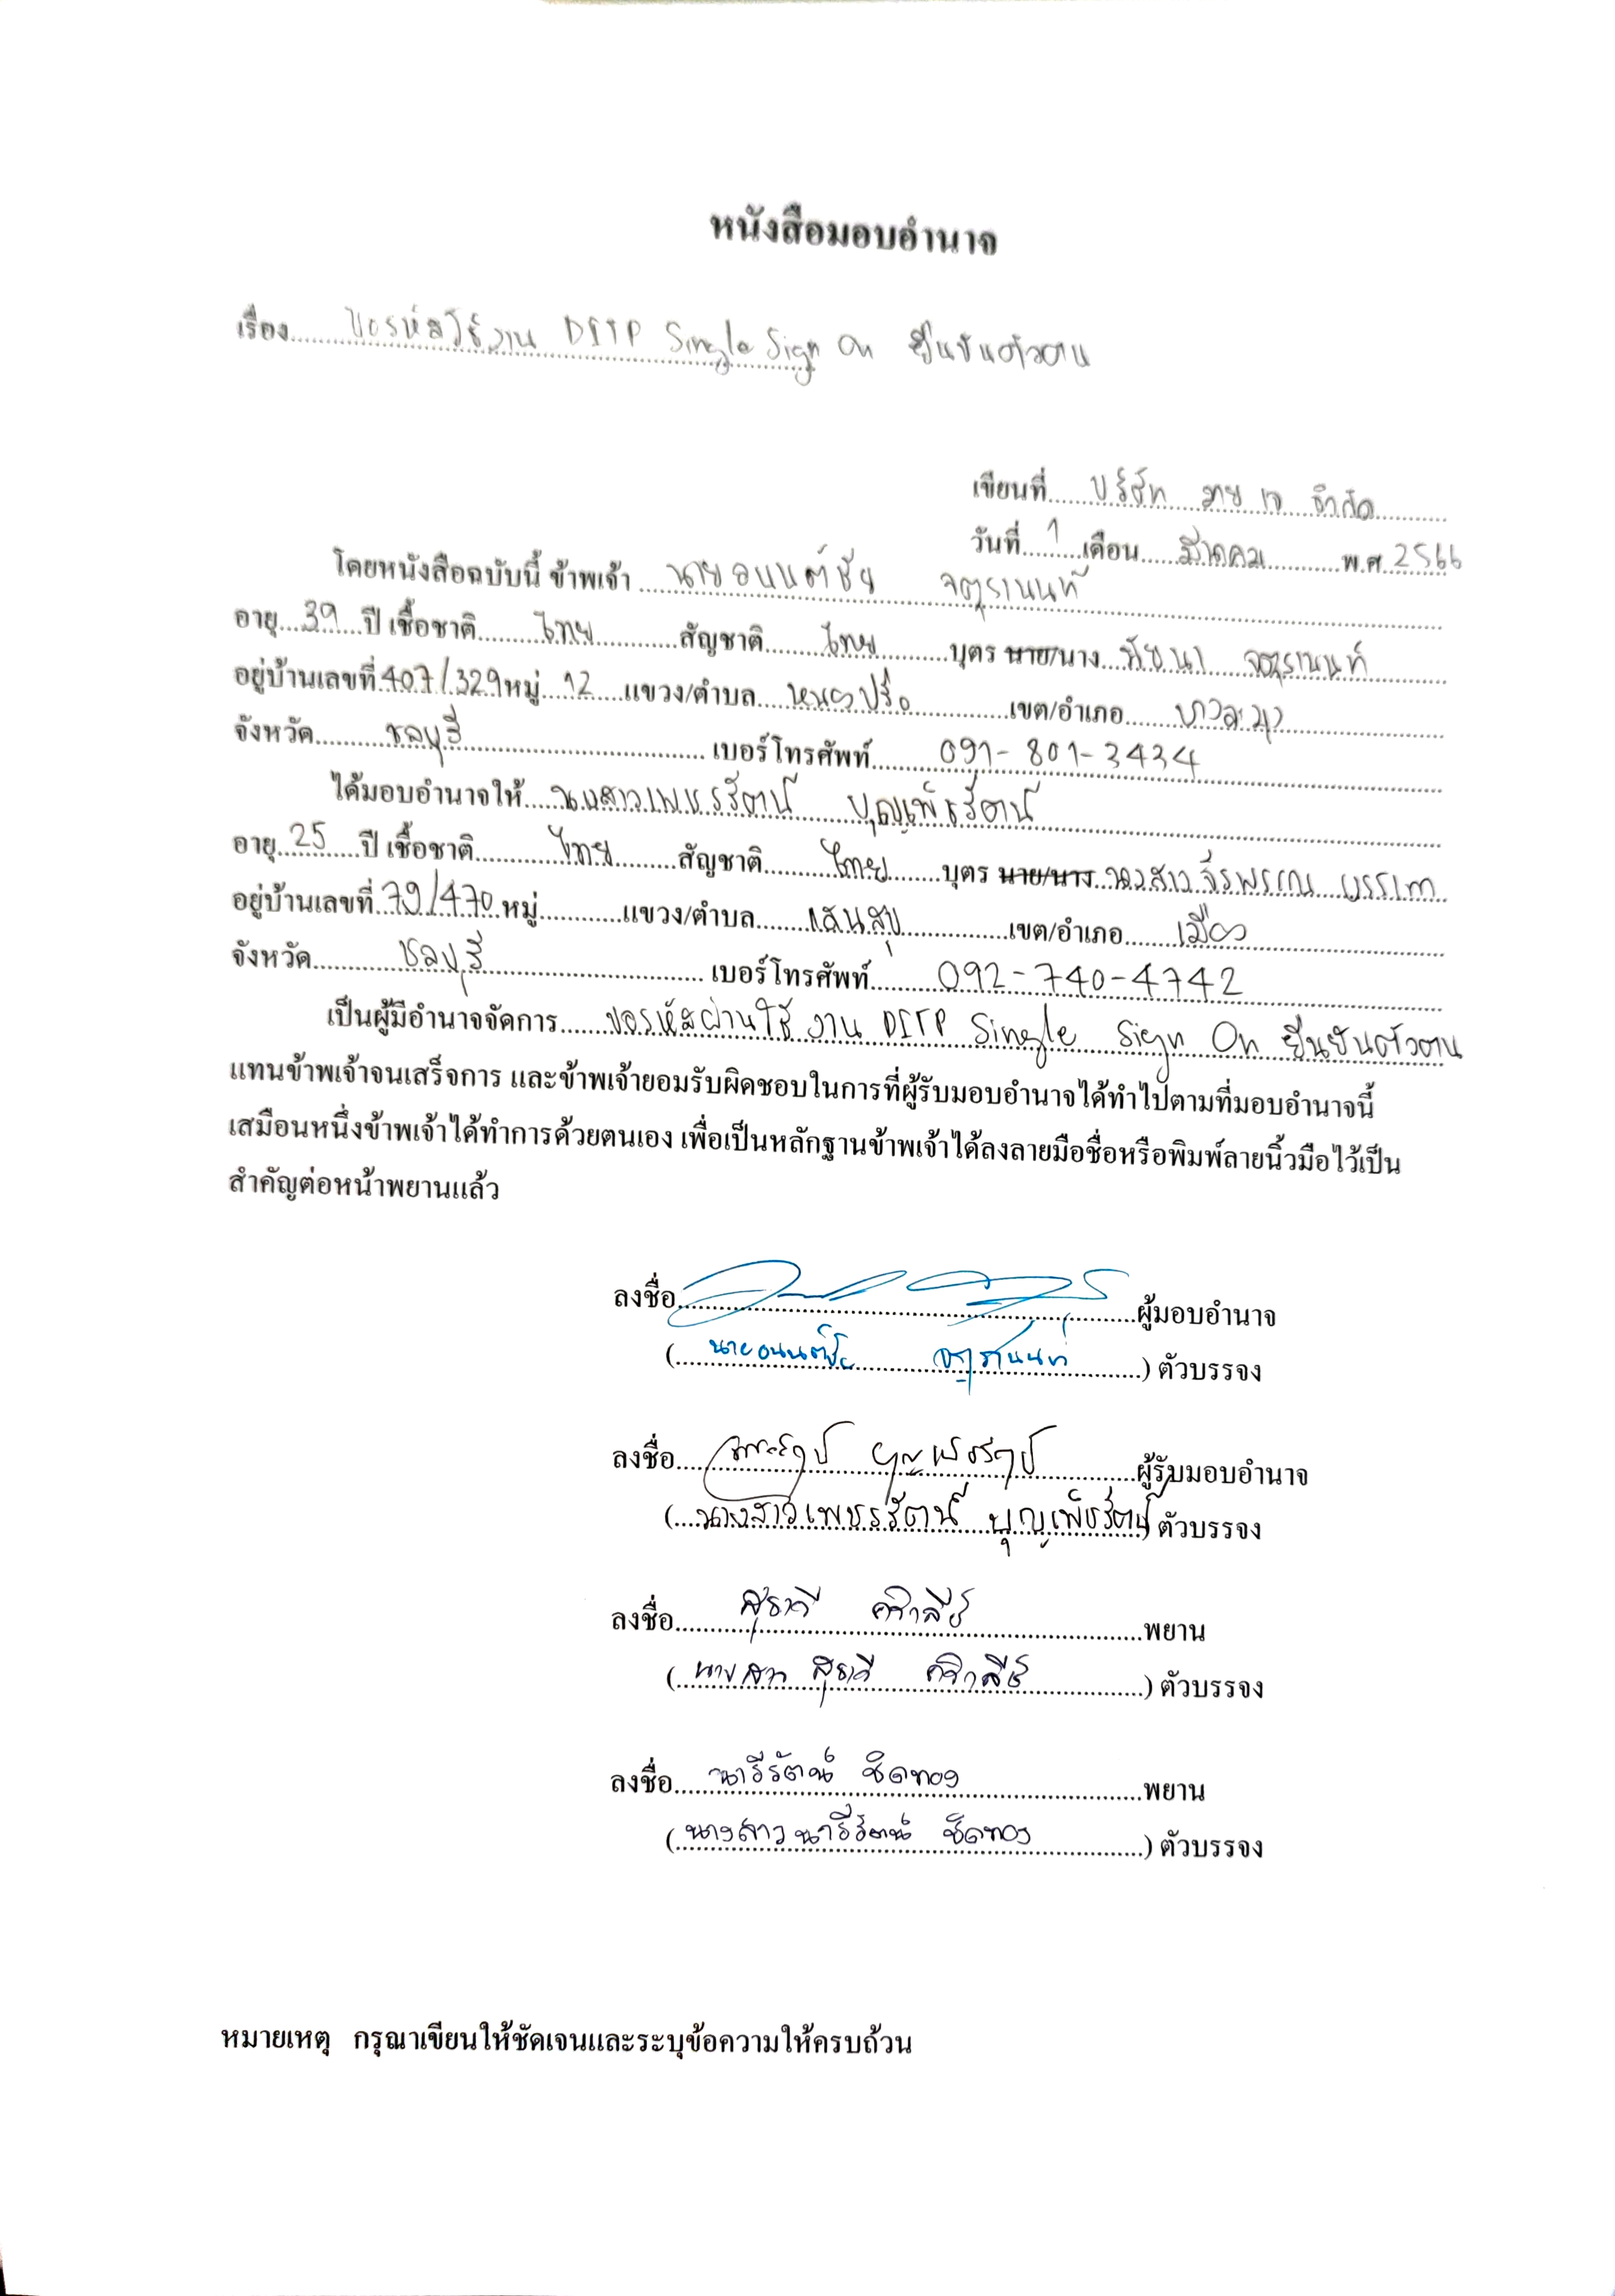 หนังสือมอบอำนาจ
เรื่อง.....ขอรหัสใช้งาน DITP Single Sign On ยืนยันตัวตน
เขียนที่.....บริษัท วาย เจ จำกัด
วันที่...1...เดือน...มีนาคม...พ.ศ.2566
โดยหนังสือฉบับนี้ ข้าพเจ้า...นายอนนต์ชัย จตุรานนท์
อายุ...39...ปี เชื้อชาติ...ไทย...สัญชาติ...ไทย...บุตร นาย/นาง... จตุรานนท์
อยู่บ้านเลขที่ 407/329 หมู่ 12 แขวง/ตำบล...หนองปรือ...เขต/อำเภอ...บางละมุง
จังหวัด...ชลบุรี...เบอร์โทรศัพท์...091-801-3434
ได้มอบอำนาจให้...นางสาวเพชรรัตน์ บุญเพ็ชรัตน์
อายุ 25 ปี เชื้อชาติ...ไทย...สัญชาติ...ไทย...บุตร นาย/นาง...นางสาว จีรพรรณ
อยู่บ้านเลขที่ 79/470 หมู่...แขวง/ตำบล...แสนสุข...เขต/อำเภอ...เมือง
จังหวัด...ชลบุรี...เบอร์โทรศัพท์...092-740-4742
เป็นผู้มีอำนาจจัดการ...ขอรหัสผ่านใช้งาน DITP Single Sign On ยืนยันตัวตน
แทนข้าพเจ้าจนเสร็จการ และข้าพเจ้ายอมรับผิดชอบในการที่ผู้รับมอบอำนาจได้ทำไปตามที่มอบอำนาจนี้
เสมือนหนึ่งข้าพเจ้าได้ทำการด้วยตนเอง เพื่อเป็นหลักฐานข้าพเจ้าได้ลงลายมือชื่อหรือพิมพ์ลายนิ้วมือไว้เป็น
สำคัญต่อหน้าพยานแล้ว
ลงชื่อ...ผู้มอบอำนาจ
(...นายอนนต์ชัย จตุรานนท์...) ตัวบรรจง
ลงชื่อ...ผู้รับมอบอำนาจ
(...นางสาวเพชรรัตน์ บุญเพ็ชรัตน์) ตัวบรรจง
ลงชื่อ...พยาน
(...นางสาว...) ตัวบรรจง
ลงชื่อ...นารีรัตน์ ชิดทอง...พยาน
(...นางสาวนารีรัตน์ ชิดทอง...) ตัวบรรจง
หมายเหตุ กรุณาเขียนให้ชัดเจนและระบุข้อความให้ครบถ้วน